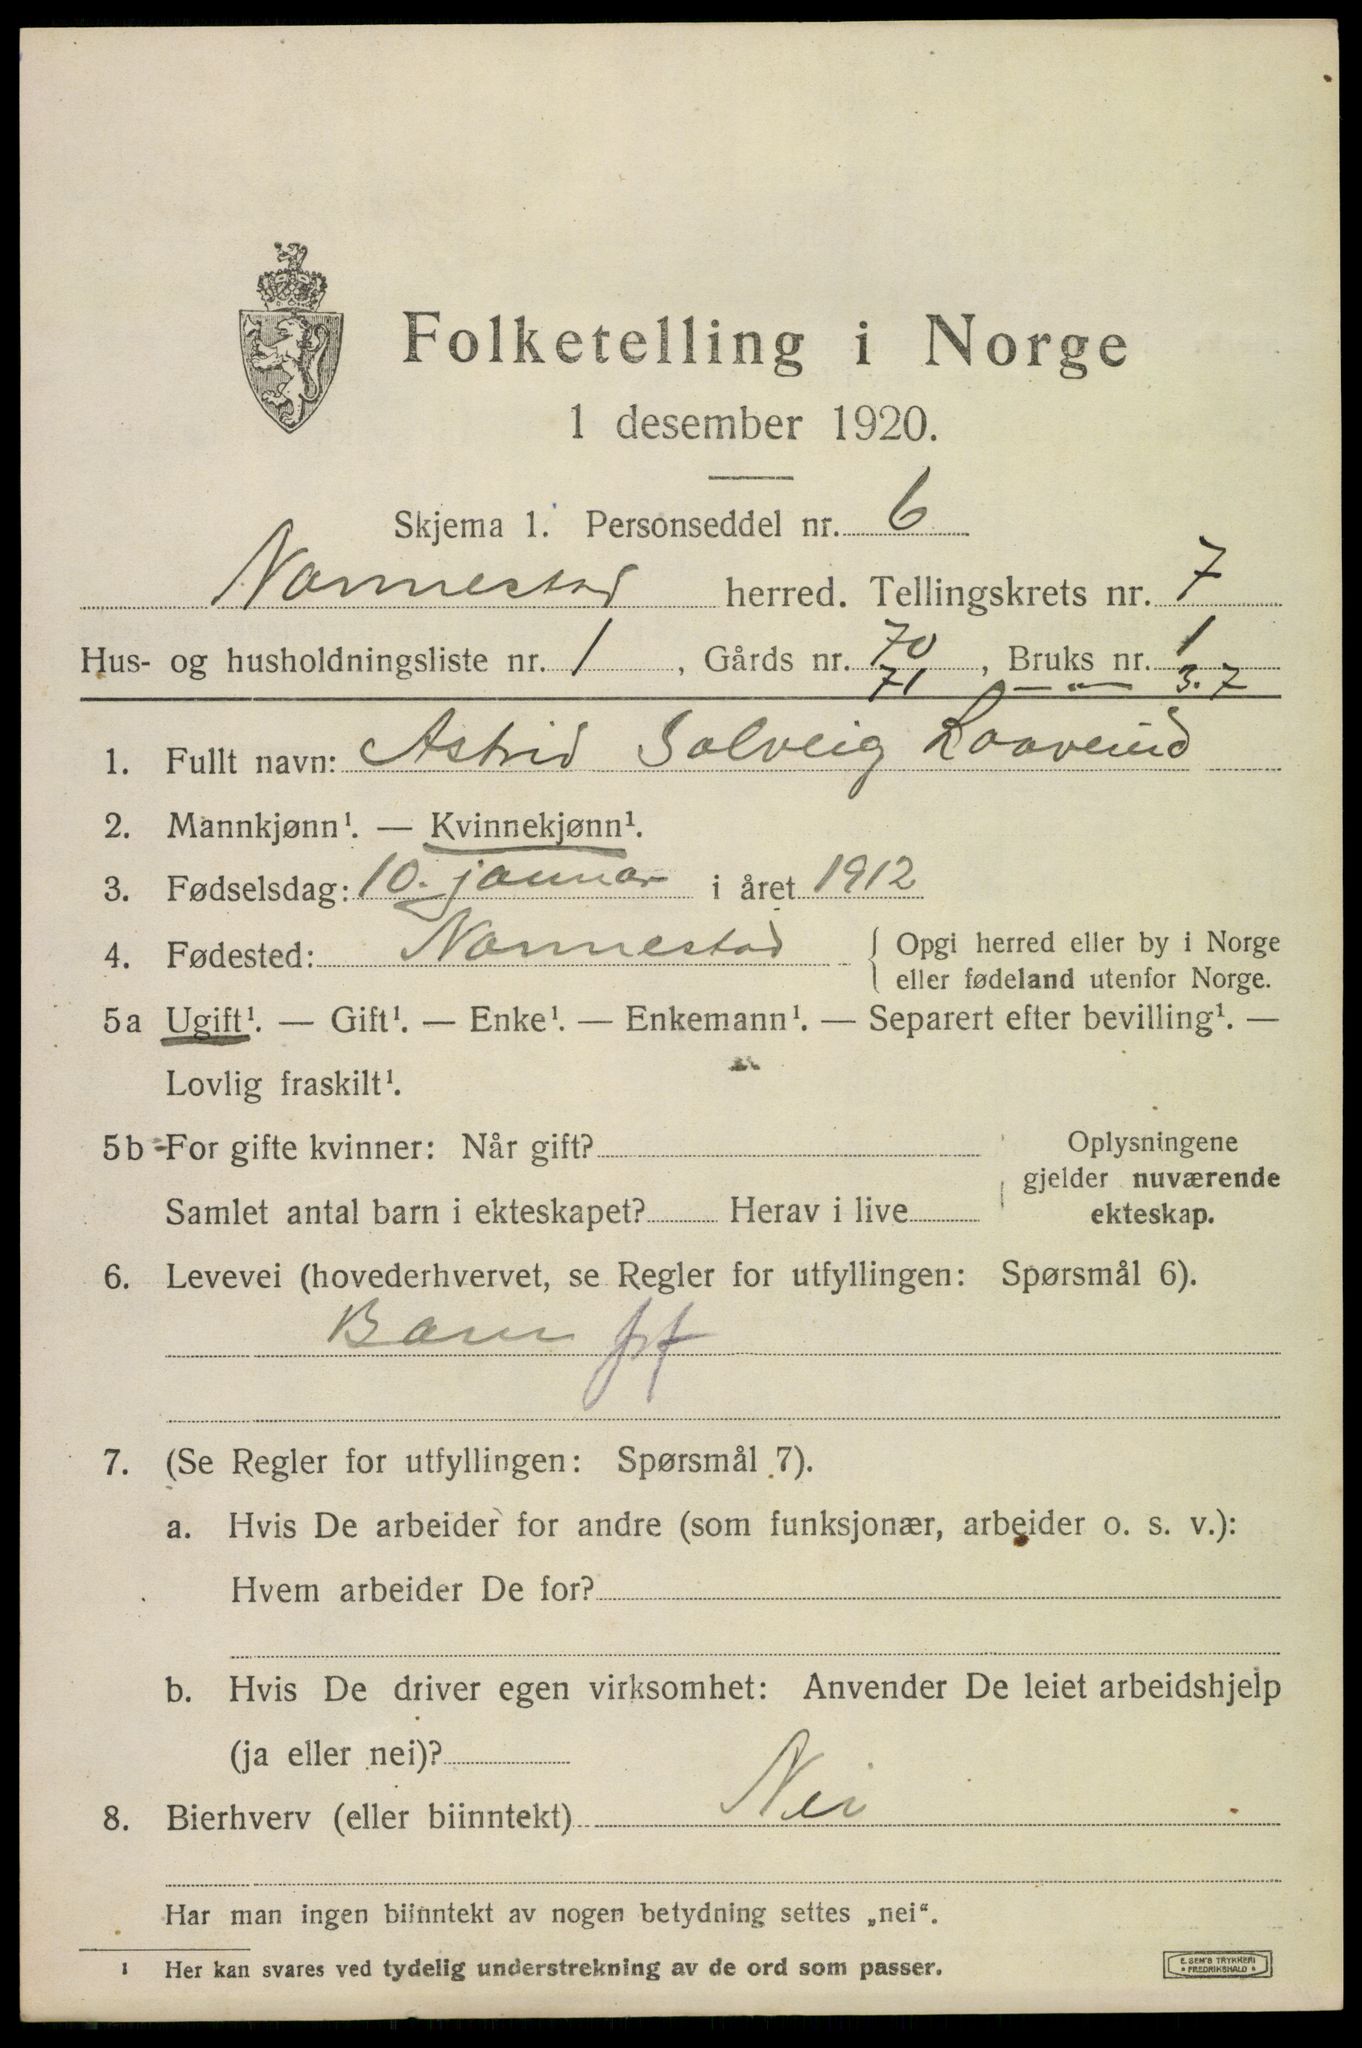 Folketelling i Norge
1 desember 1920.
Skjema 1. Personseddel nr. 6
Nannestad herred. Tellingskrets nr. 7
Hus- og husholdningsliste nr. 1, Gårds nr. 70, Bruks nr. 1
71 — „ — 3.7
1. Fullt navn: Astrid Solveig
2. Mannkjønn¹. — Kvinnekjønn¹.
3. Fødselsdag: 10. januar i året 1912
4. Fødested: Nannestad { Opgi herred eller by i Norge
eller fødeland utenfor Norge.
5a Ugift¹. — Gift¹. — Enke¹. — Enkemann¹. — Separert efter bevilling¹. —
Lovlig fraskilt¹.
5b For gifte kvinner: Når gift?
Samlet antal barn i ekteskapet? Herav i live
Oplysningene
gjelder nuværende
ekteskap.
6. Levevei (hovederhvervet, se Regler for utfyllingen: Spørsmål 6).
Barn
7. (Se Regler for utfyllingen: Spørsmål 7).
a. Hvis De arbeider for andre (som funksjonær, arbeider o. s. v.):
Hvem arbeider De for?
b. Hvis De driver egen virksomhet: Anvender De leiet arbeidshjelp
(ja eller nei)?
8. Bierhverv (eller biinntekt) Nei
Har man ingen biinntekt av nogen betydning settes „nei“.
¹ Her kan svares ved tydelig understrekning av de ord som passer.
E. SEM'S TRYKKERI
• FREDRIKSHALD •